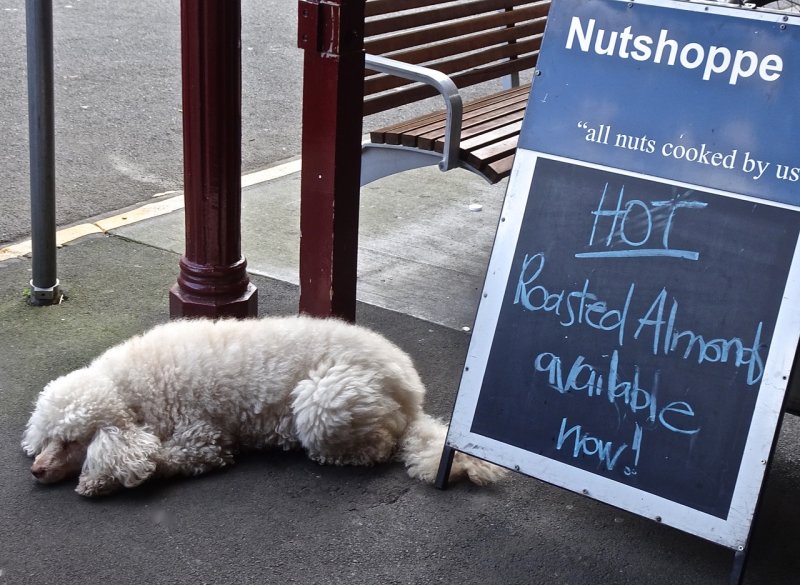 Nutshoppe
“all nuts cooked by us
HOT
Roasted Almonds
available
now!